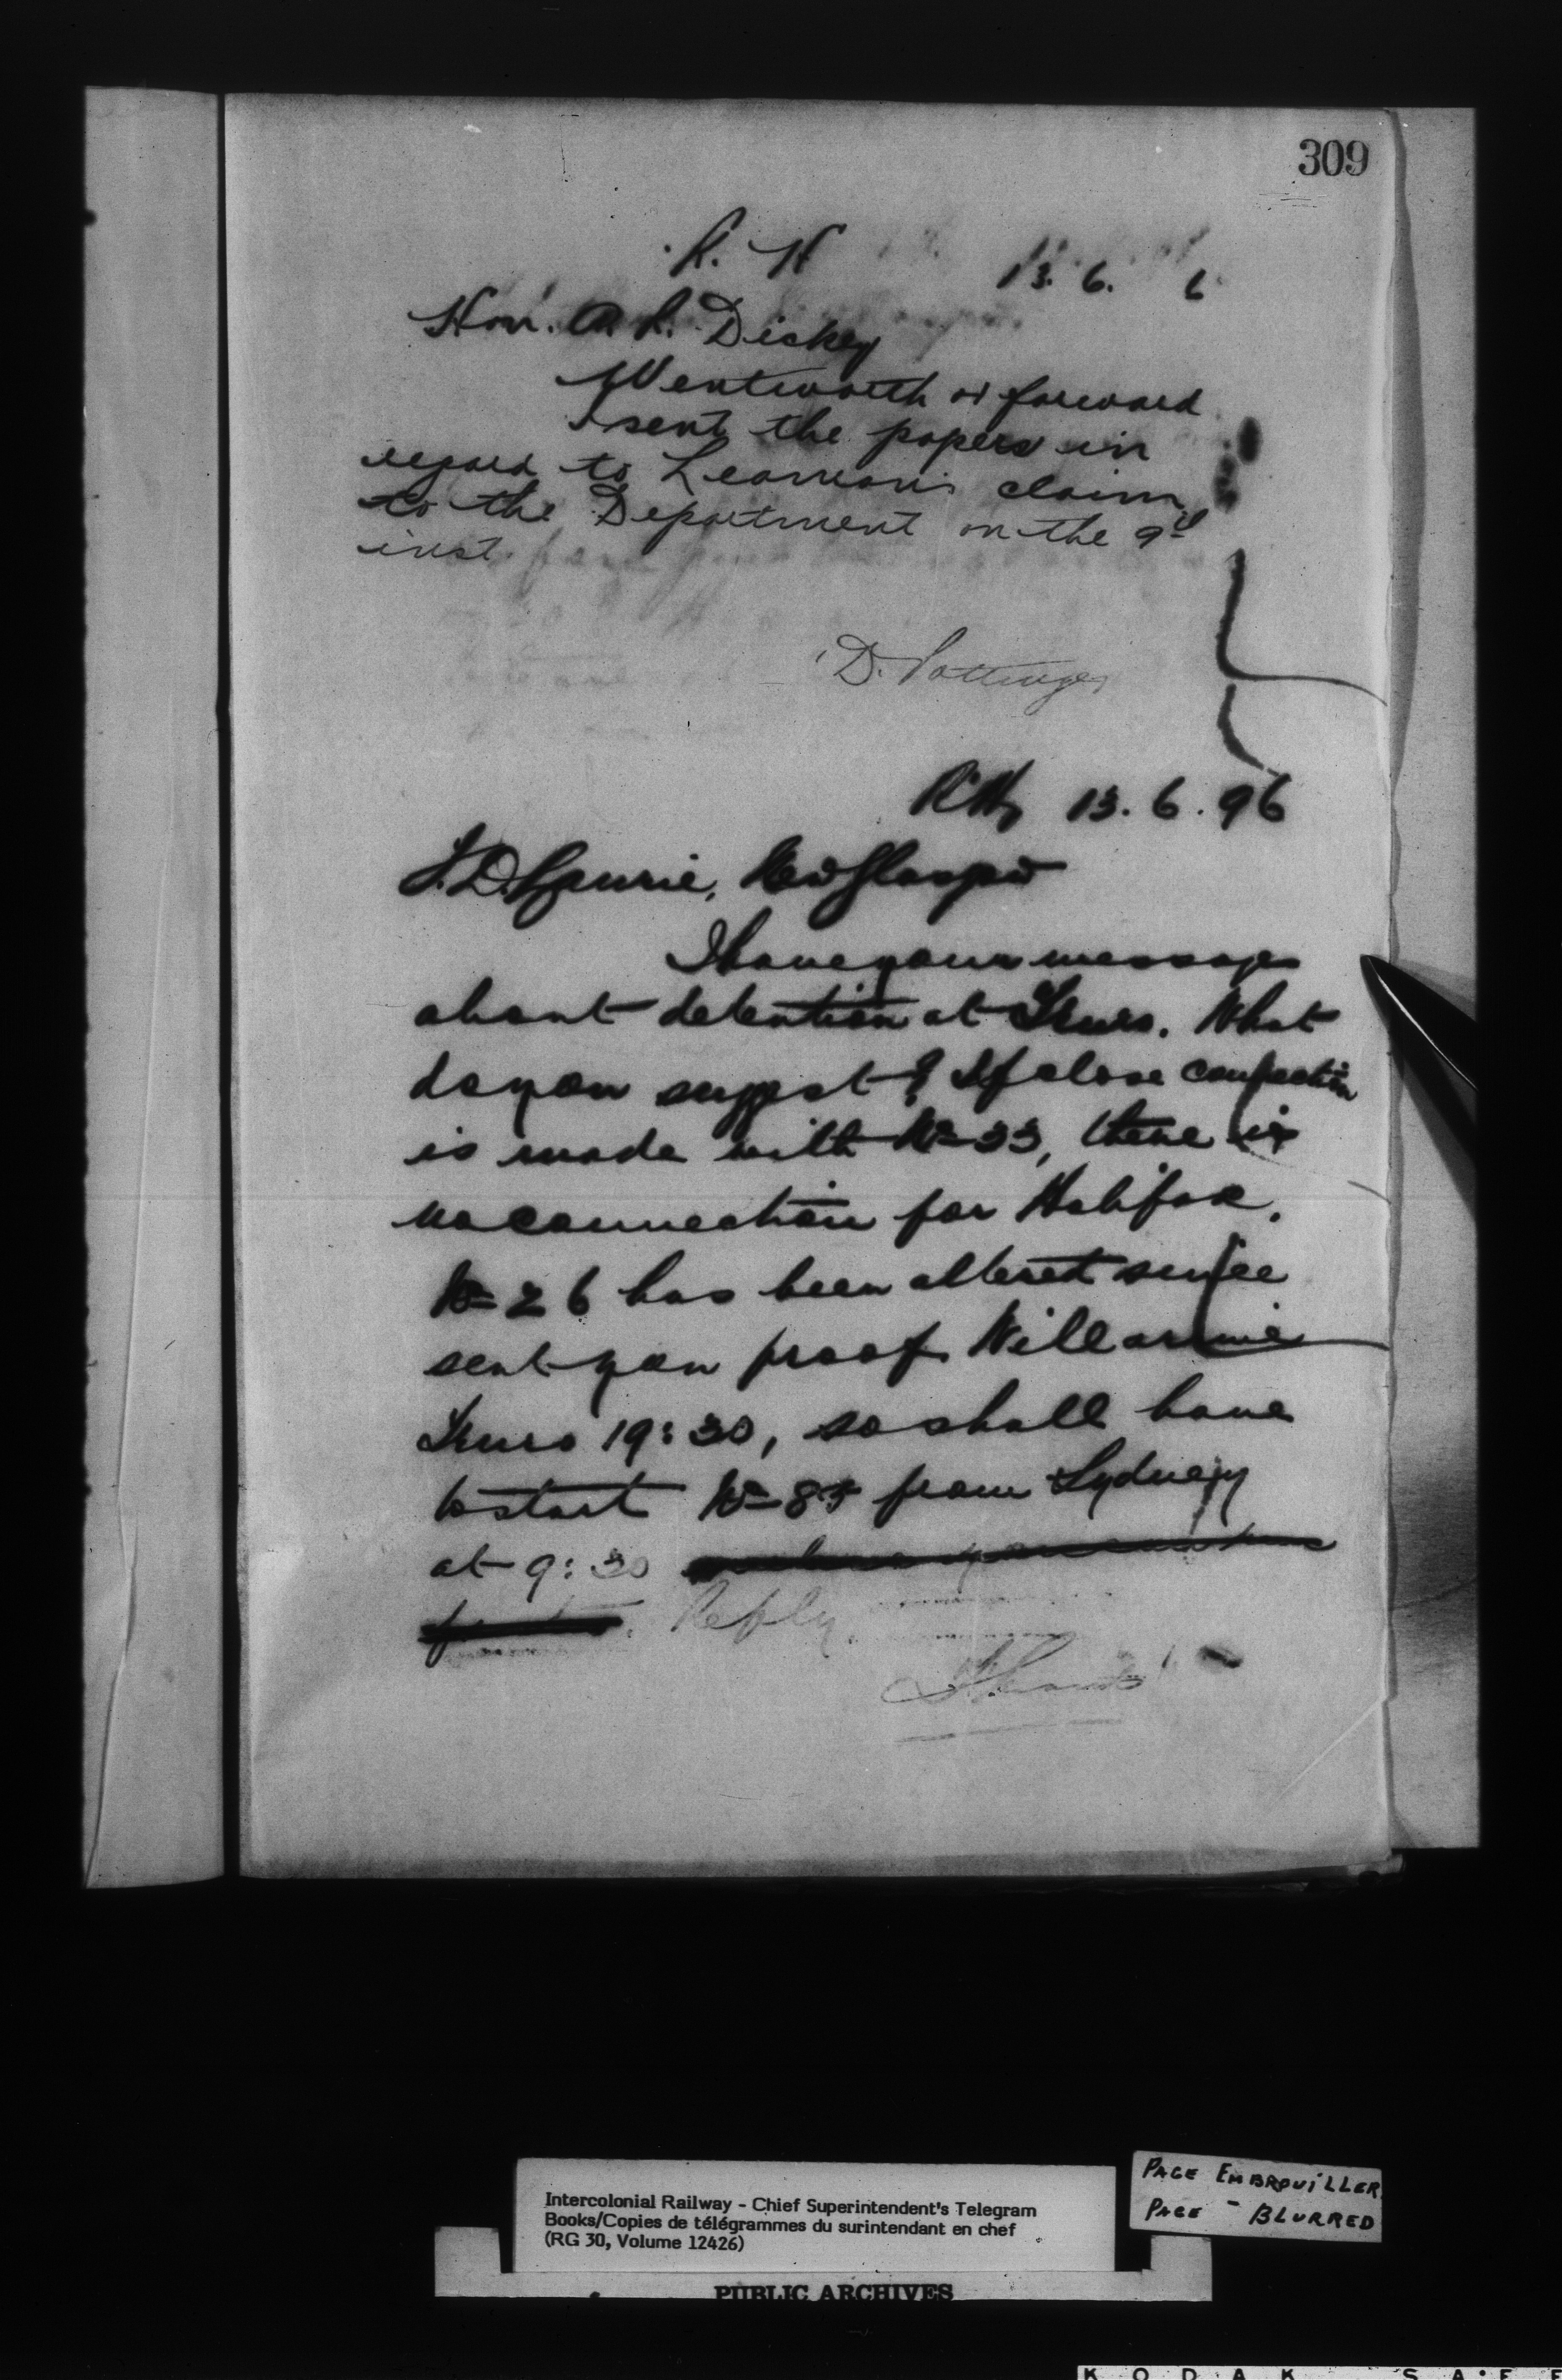 309
R. H 13. 6. 6
Hon. A R. Dickey
Wentworth or forward
I sent the papers in
regard to Leaman's claim
to the Department on the 9th
inst.
D. Pottinger
RHy 13. 6. 96
J.D. Laurie, New Glasgow
I have your message
about detention at Truro. What
do you suggest? If close connection
is made with No 33, there is
no connection for Halifax.
No 26 has been altered since
sent you proof. Will arrive
Truro 19:30, so shall have
to start No 85 from Sydney
at 9:30
Reply.
Intercolonial Railway - Chief Superintendent's Telegram
Books/Copies de télégrammes du surintendant en chef
(RG 30, Volume 12426)
PAGE EMBROUILLER
PAGE - BLURRED
PUBLIC ARCHIVES
KODAK SAFE